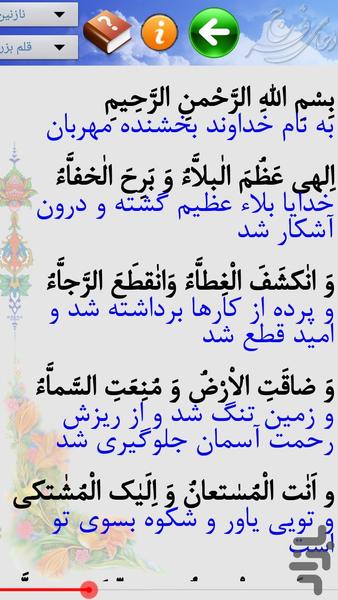 نازنین
قلم بزر
دعای فرج
بِسْمِ اللهِ الرَّحْمنِ الرَّحِيمِ
به نام خداوند بخشنده مهربان
اِلهي عَظُمَ الْبَلاَّءُ وَ بَرِحَ الْخَفاَّءُ
خدایا بلاء عظیم گشته و درون
آشکار شد
وَ انْكَشَفَ الْغِطاَّءُ وَانْقَطَعَ الرَّجاَّءُ
و پرده از کارها برداشته شد و
امید قطع شد
وَ ضاقَتِ الاْرْضُ وَ مُنِعَتِ السَّماَّءُ
و زمین تنگ شد و از ریزش
رحمت آسمان جلوگیری شد
و اَنْتَ الْمُسْتَعانُ وَ اِلَيْكَ الْمُشْتَكى
و تویی یاور و شکوه بسوی تو
است
بازار